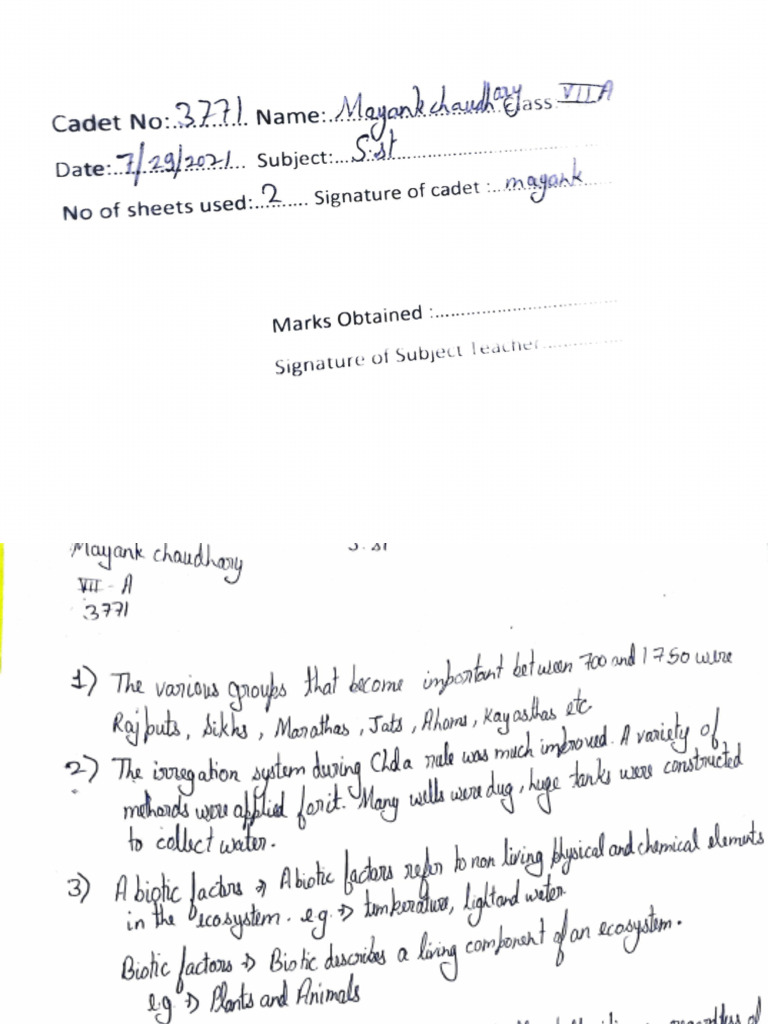 Cadet No:..3771. Name:..Mayank chaudhary Class..VII A
Date:..7/29/2021... Subject:...S.st
No of sheets used:..2.... Signature of cadet :...mayank
Marks Obtained :
Signature of Subject Teacher
Mayank chaudhary S.st
VII - A
3771
1) The various groups that become important between 700 and 1750 were
Rajputs, Sikhs, Marathas, Jats, Ahoms, Kayasthas etc
2) The irregation system during Chola rule was much improved. A variety of
methords were applied for it. Many wells were dug, huge tanks were constructed
to collect water.
3) Abiotic factors → Abiotic factors refer to non living physical and chemical elements
in the ecosystem. e.g. → temkerature, light and water
Biotic factors → Biotic describes a living component of an ecosystem.
e.g → Plants and Animals
regardless of